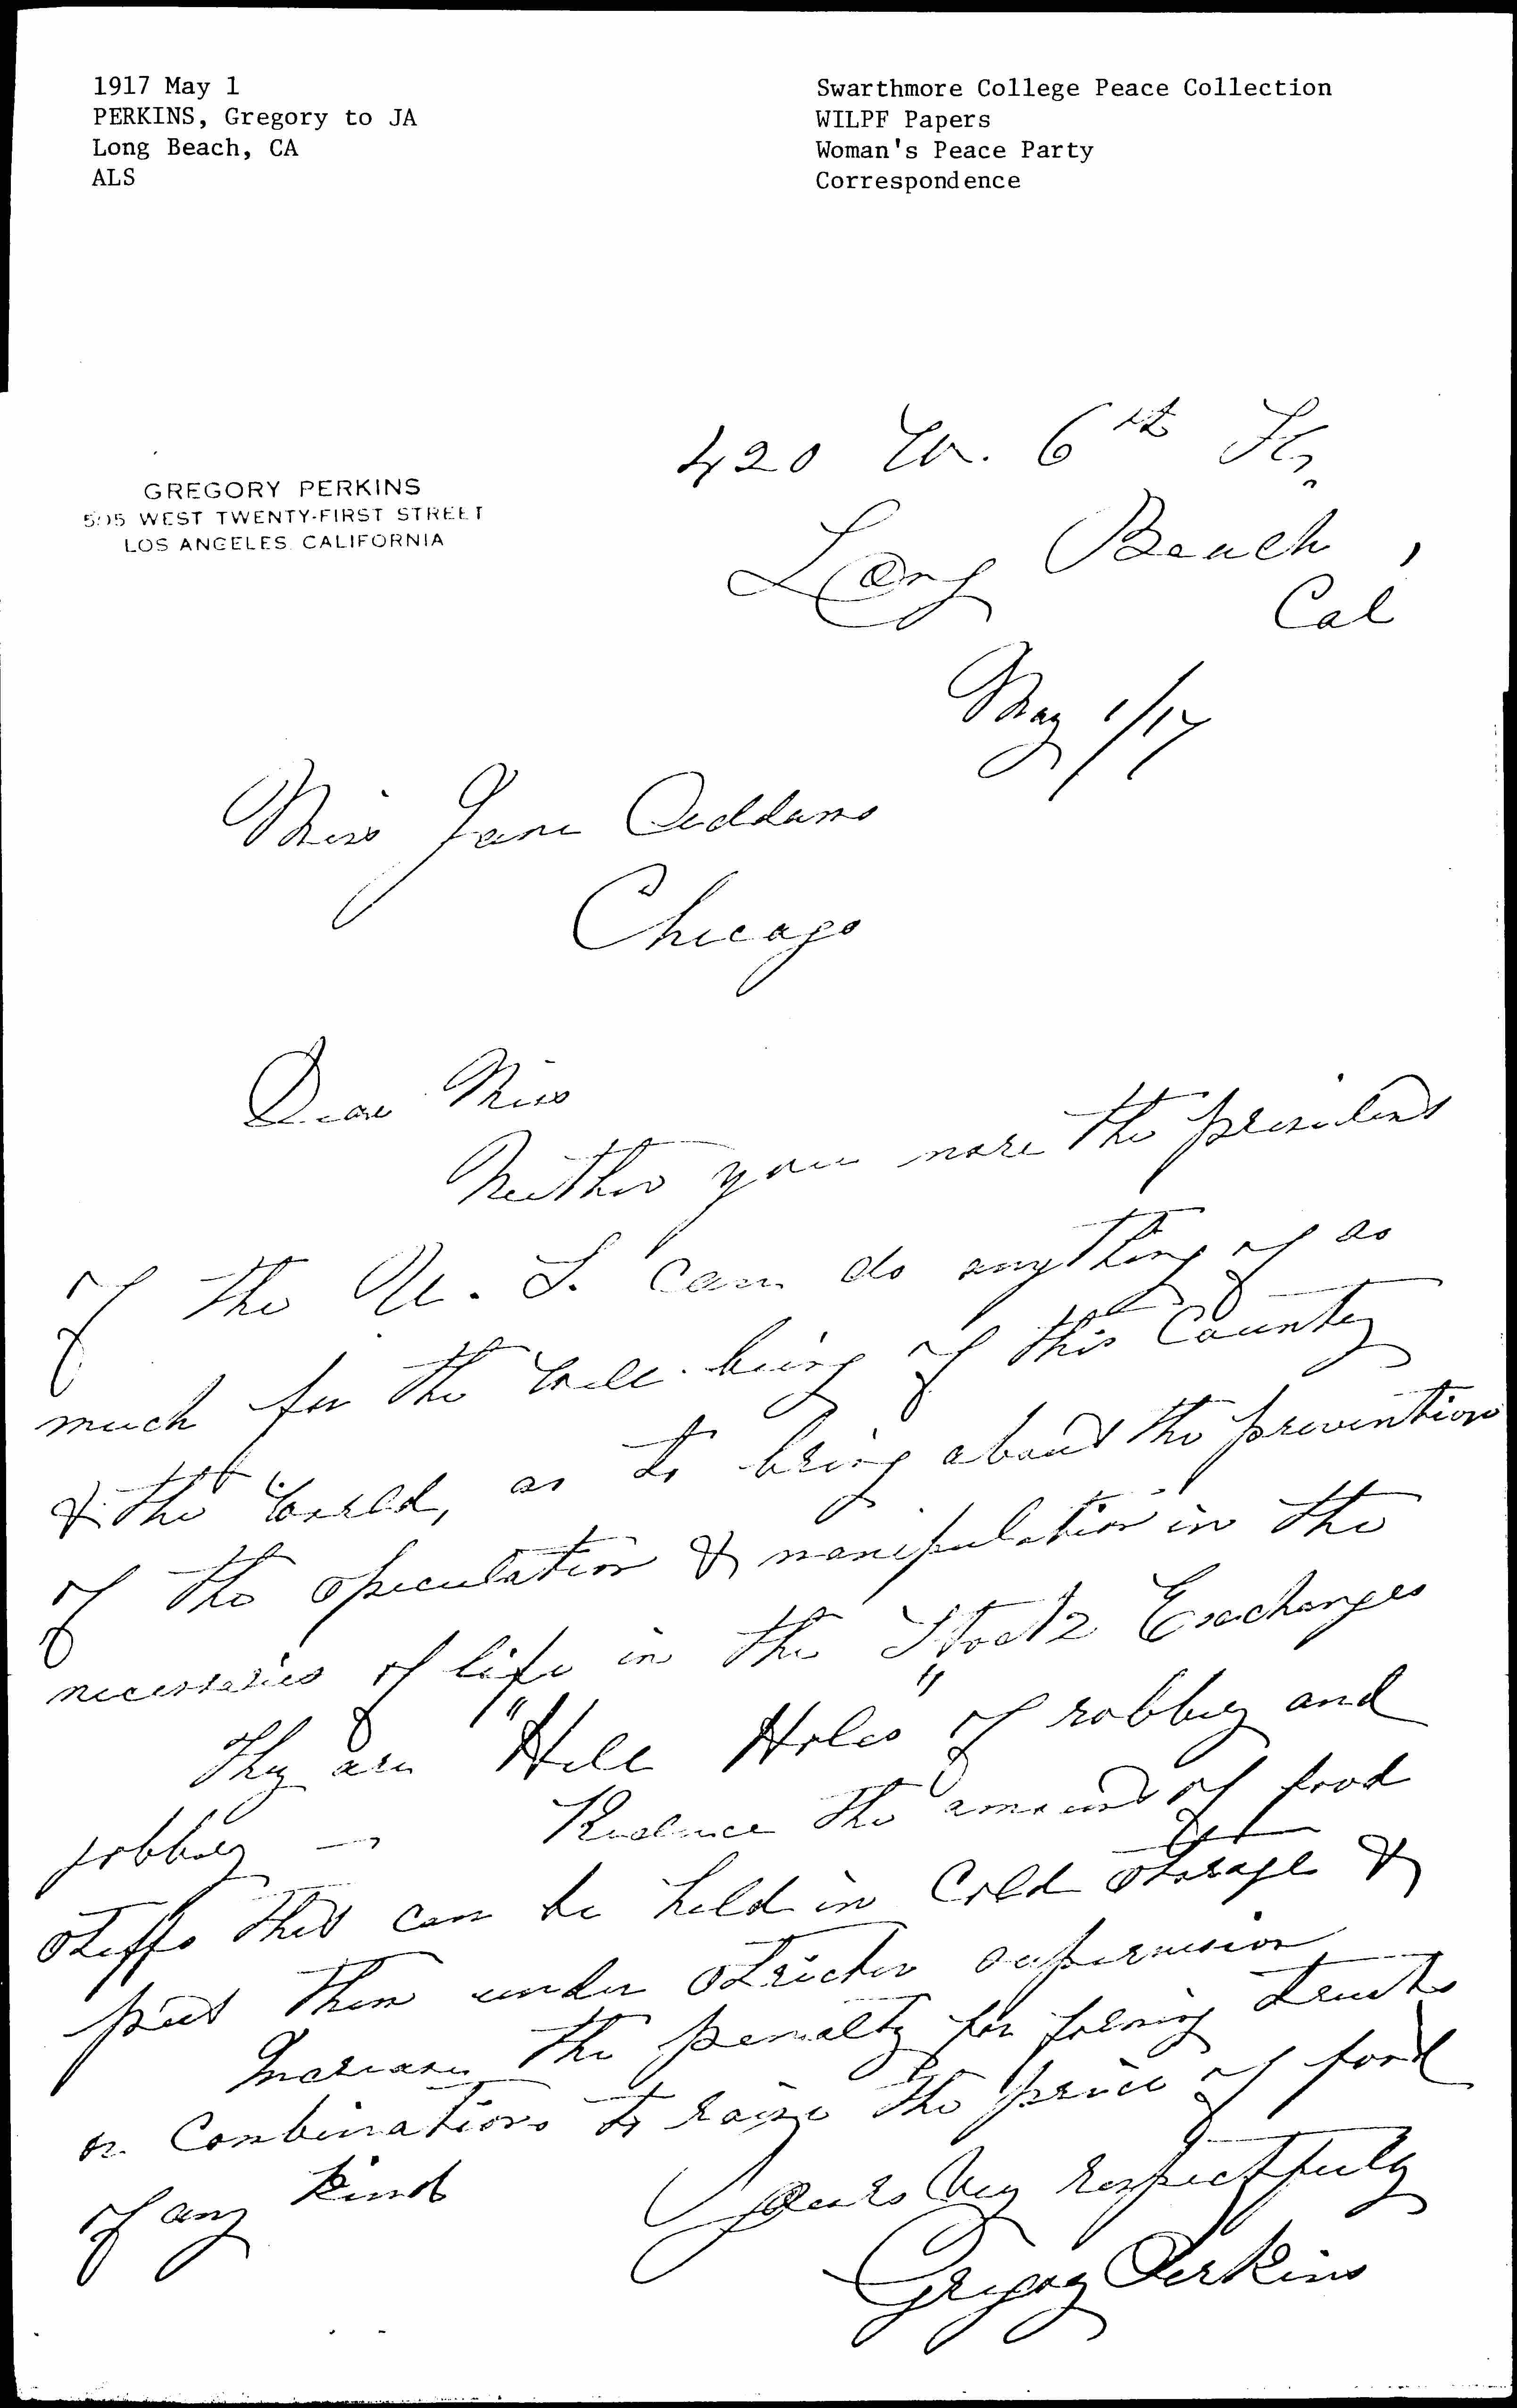 1917 May 1
PERKINS, Gregory to JA
Long Beach, CA
ALS
Swarthmore College Peace Collection
WILPF Papers
Woman's Peace Party
Correspondence
GREGORY PERKINS
WEST TWENTY-FIRST STREET
LOS ANGELES, CALIFORNIA
420 W. 6th St,
Long Beach,
Cal
May 1/17
Miss Jane Addams
Chicago
Dear Miss
Neither you nore the president
of the U. S. can do anything of as
much for the well-being of this Country
& the World, as to bring about the prevention
of the speculation & manipulation in the
necessaries of life in the Stock Exchanges
They are "Hell Holes" of robbery and
jobbery — Reduce the amount of food
stuffs that can be held in Cold Storage &
put them under stricter supervision
Increase the penalty for forming trusts
or Combinations to raise the price of food
of any kind
Yours Very respectfully
Gregory Perkins